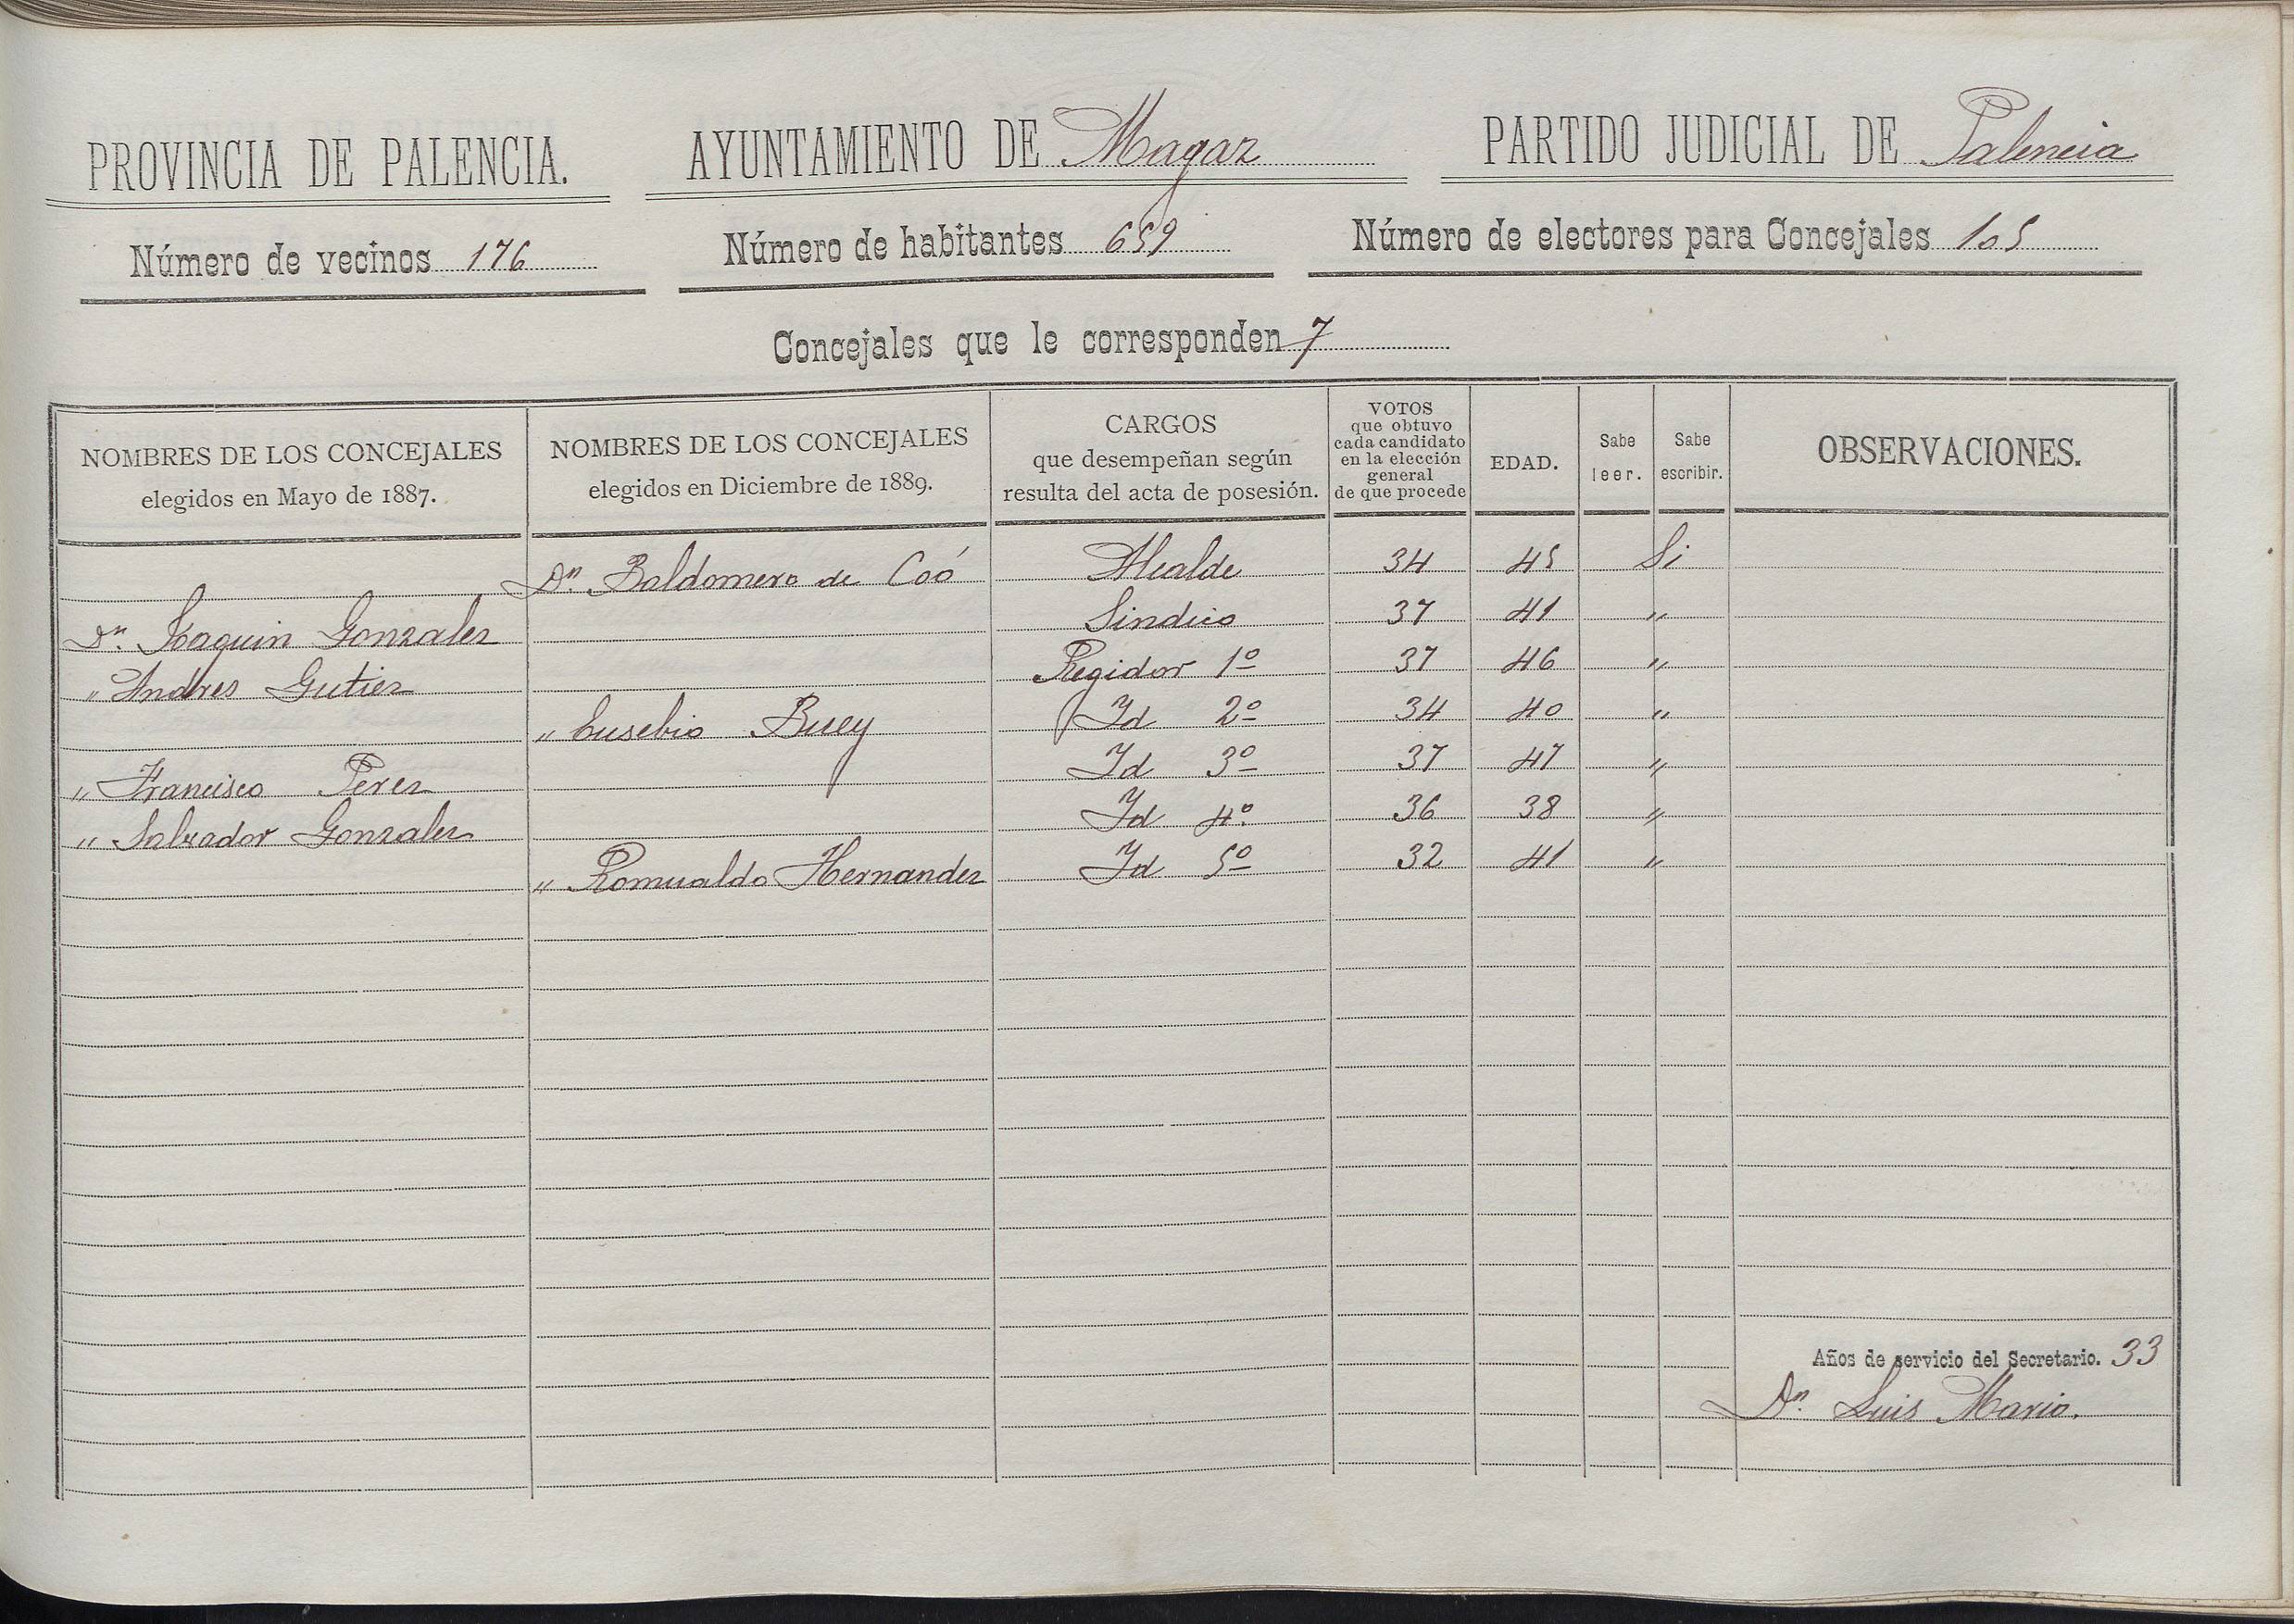 PROVINCIA DE PALENCIA. AYUNTAMIENTO DE Magaz PARTIDO JUDICIAL DE Palencia
Número de vecinos 176 Número de habitantes 659 Número de electores para Concejales 105
Concejales que le corresponden 7
NOMBRES DE LOS CONCEJALES
elegidos en Mayo de 1887.
NOMBRES DE LOS CONCEJALES
elegidos en Diciembre de 1889.
CARGOS
que desempeñan según
resulta del acta de posesión.
VOTOS
que obtuvo
cada candidato
en la elección
general
de que procede
EDAD.
Sabe
leer.
Sabe
escribir.
OBSERVACIONES.
Dn. Baldomero de Coó Alcalde 34 45 Si
Dn. Joaquin Gonzalez Sindico 37 41 "
" Andres Gutiez Regidor 1º 37 46 "
" Eusebio Buey Id 2º 34 40 "
" Francisco Perez Id 3º 37 47 "
" Salvador Gonzalez Id 4º 36 38 "
" Romualdo Hernandez Id 5º 32 41 "
Años de servicio del Secretario. 33
Dn. Luis Mario.